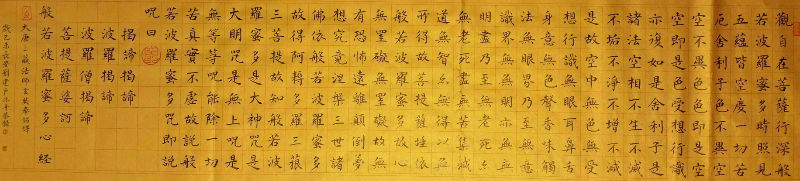 觀自在菩薩行深般
若波羅蜜多時照見
五蘊皆空度一切苦
厄舍利子色不異空
空不異色色即是空
空即是色受想行識
亦復如是舍利子是
諸法空相不生不滅
不垢不淨不增不減
是故空中無色無受
想行識無眼耳鼻舌
身意無色聲香味觸
法無眼界乃至無意
識界無無明亦無無
明盡乃至無老死亦
無老死盡無苦集滅
道無智亦無得以無
所得故菩提薩埵依
般若波羅蜜多故心
無罣礙無罣礙故無
有恐怖遠離顛倒夢
想究竟涅槃三世諸
佛依般若波羅蜜多
故得阿耨多羅三藐
三菩提故知般若波
羅蜜多是大神咒是
大明咒是無上咒是
無等等咒能除一切
苦真實不虛故說般
若波羅蜜多咒即說
咒曰
揭諦揭諦
波羅揭諦
波羅僧揭諦
菩提薩婆訶
般若波羅蜜多心經
大唐三藏法師玄奘奉詔譯
歲乙未